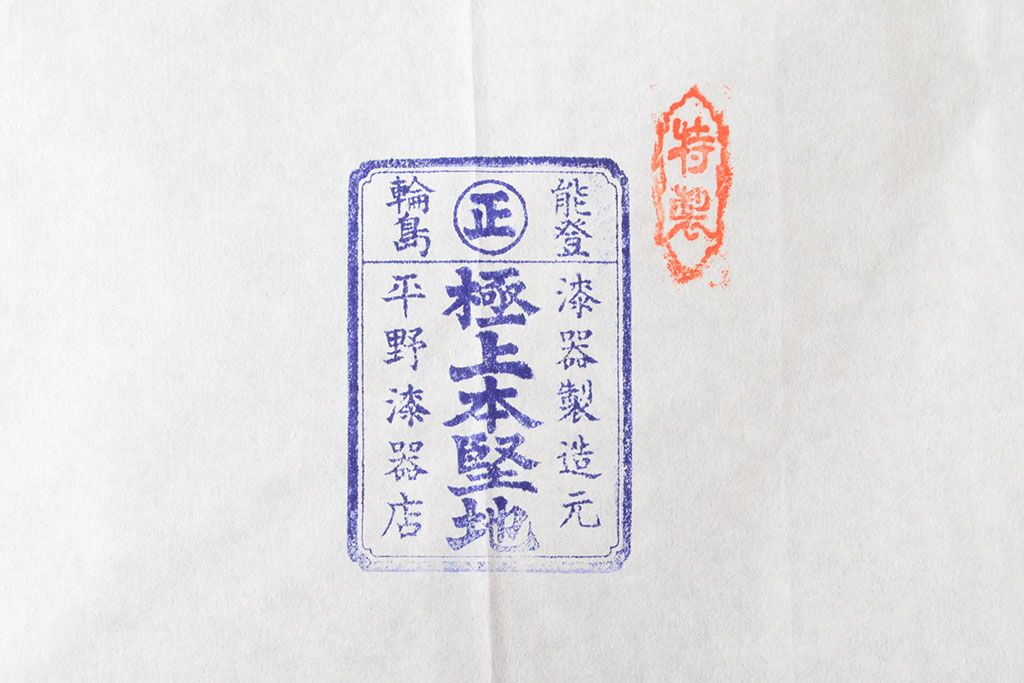 特製
能登
㊣
輪島
漆器製造元
極上本堅地
平野漆器店